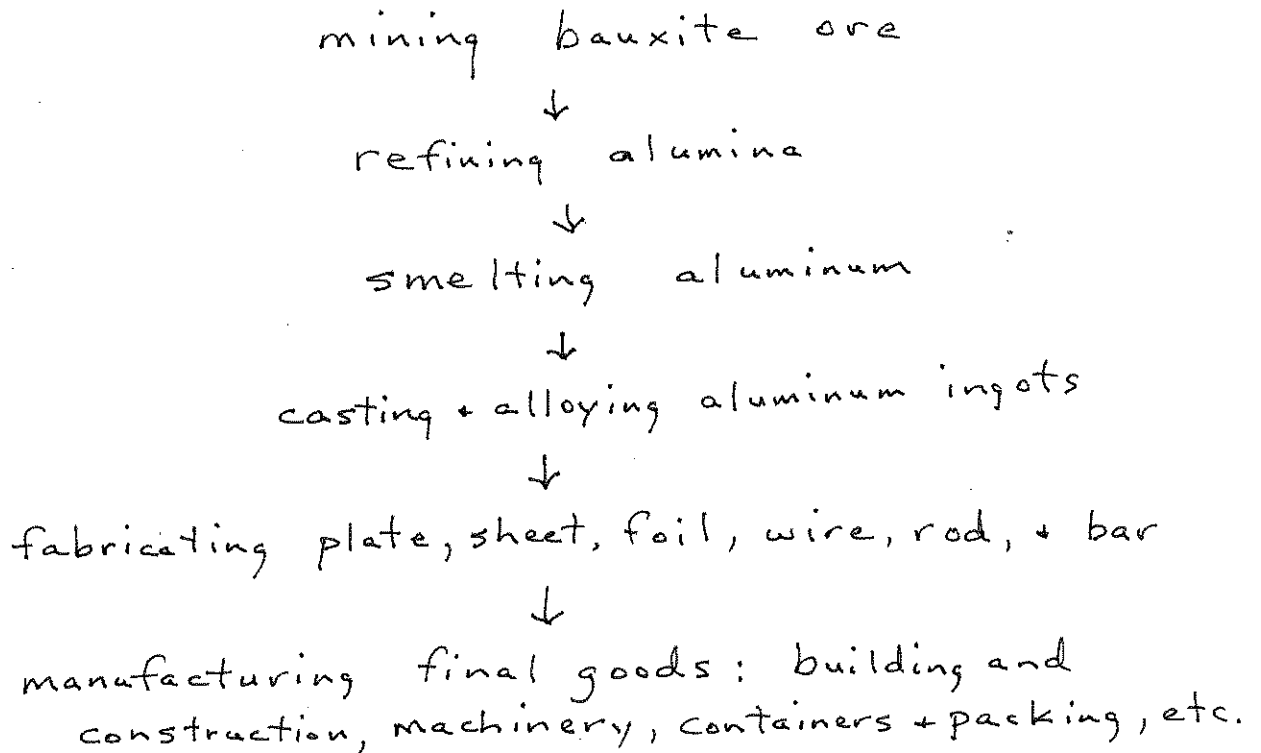 mining bauxite ore
↓
refining alumina
↓
smelting aluminum
↓
casting + alloying aluminum ingots
↓
fabricating plate, sheet, foil, wire, rod, + bar
↓
manufacturing final goods: building and
construction, machinery, containers + packing, etc.